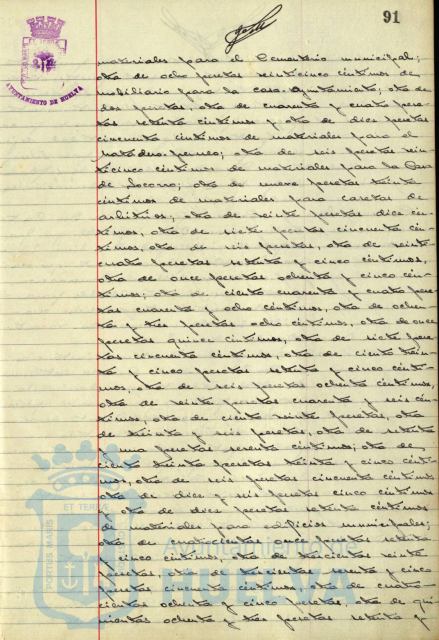 91
AYUNTAMIENTO DE HUELVA
materiales para el Cementerio municipal;
otra de ocho pesetas veinticinco céntimos de
mobiliario para la casa Ayuntamiento, otra de
dos pesetas, otra de cuarenta y cuatro pese-
tas setenta céntimos y otra de diez pesetas
cincuenta céntimos de materiales para el
otra de seis pesetas vein-
ticinco céntimos de materiales para la Casa
de Socorro; otra de nueve pesetas treinta
céntimos de materiales para casetas de
arbitrios; otra de veinte pesetas diez cén-
timos, otra de siete pesetas cincuenta cén-
timos, otra de seis pesetas, otra de veinte
cuatro pesetas setenta y cinco céntimos,
otra de once pesetas ochenta y cinco cén-
timos; otra de ciento cuarenta y cuatro pese-
tas cuarenta y ocho céntimos, otra de ochen-
ta y tres pesetas ocho céntimos, otra de once
pesetas quince céntimos, otra de siete pese-
tas cincuenta céntimos, otra de ciento trein-
ta y cinco pesetas setenta y cinco cénti-
mos, otra de seis pesetas ochenta céntimos,
otra de veinte pesetas cuarenta y seis cén-
timos, otra de ciento veinte pesetas, otra
de treinta y seis pesetas, otra de setenta
y una pesetas sesenta céntimos; otra de
ciento treinta pesetas treinta y cinco cénti-
mos, otra de seis pesetas cincuenta céntimos
otra de diez y seis pesetas cinco céntimos
y otra de doce pesetas setenta céntimos
de materiales para edificios municipales;
otra de cuatrocientas once pesetas setenta
y cinco céntimos, otra de trescientas veinte
pesetas, otra de trescientas setenta y cinco
pesetas cincuenta céntimos, otra de cuatro-
cientas ochenta y cinco pesetas, otra de qui-
nientas ochenta y tres pesetas setenta y
ET TERRAE
PORTUS MARIS
Ayuntamiento de
HUELVA